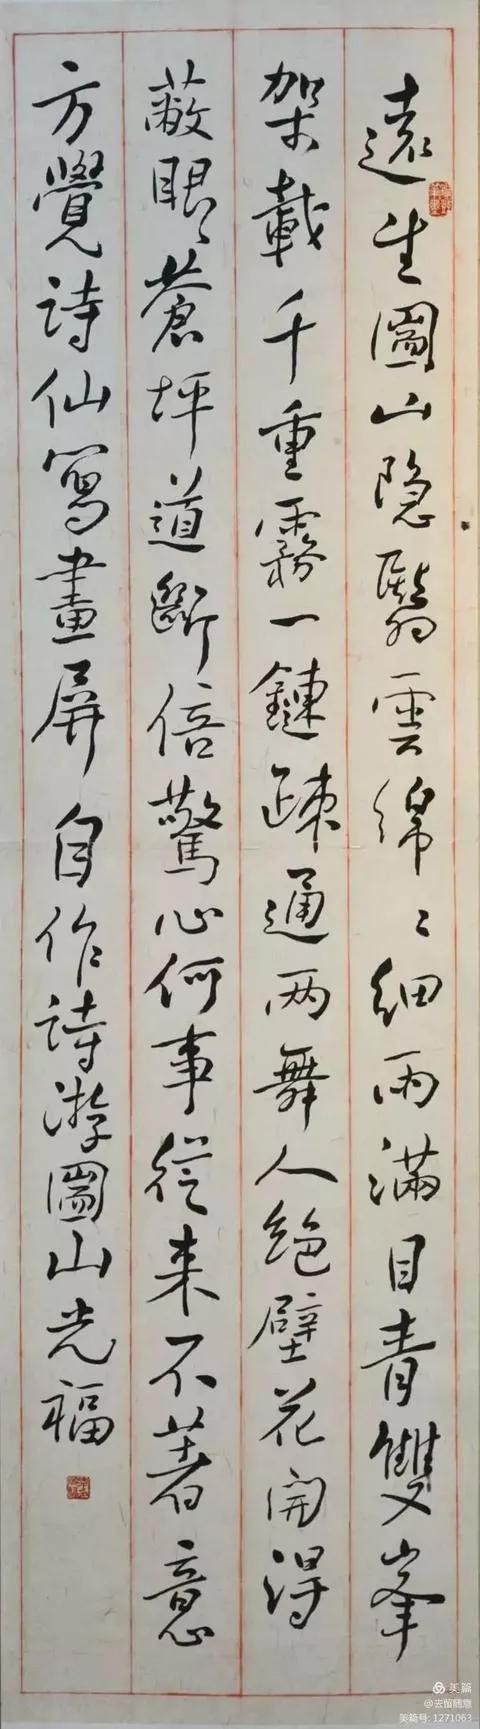 遠坐圖山隐翳雲綿〻細雨滿目青雙峯
架載千重霧一鏈疎通两舞人絶壁花開得
蔽眼〻蒼坪道斷倍驚心何事從来不著意
方覺詩仙寫畫屏自作詩游圖山光福
美篇
@去留随意
美篇号: 1271063